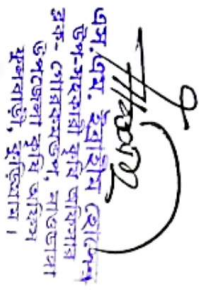 এস.এম. ইব্রাহিম হোসেন
উপ-সহকারী কৃষি অফিসার
ব্লক- গোরকমন্ডল, নাওডাঙ্গা
উপজেলা কৃষি অফিস
ফুলবাড়ী, কুড়িগ্রাম।